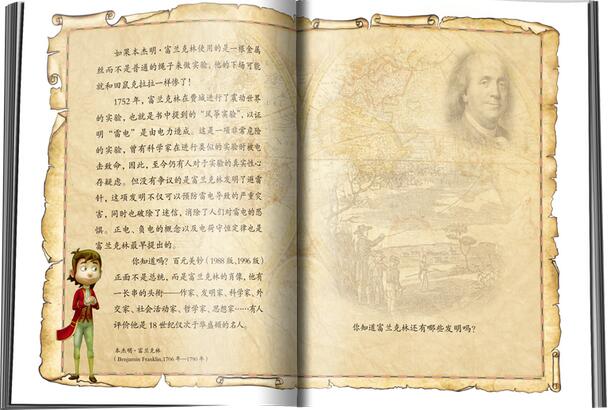 如果本杰明·富兰克林使用的是一根金属
丝而不是普通的绳子来做实验，他的下场可能
就和田鼠克拉拉一样惨了！
1752 年，富兰克林在费城进行了震动世界
的实验，也就是书中提到的“风筝实验”，以证
明“雷电”是由电力造成。这是一项非常危险
的实验，曾有科学家在进行类似的实验时被电
击致命，因此，至今仍有人对于实验的真实性心
存疑虑。但没有争议的是富兰克林发明了避雷
针，这项发明不仅可以预防雷电导致的严重灾
害，同时也破除了迷信，消除了人们对雷电的恐
惧。正电、负电的概念以及电荷守恒定律也是
富兰克林最早提出的。
你知道吗？百元美钞（1988 版、1996 版）
正面不是总统，而是富兰克林的肖像，他有
一长串的头衔——作家、发明家、科学家、外
交家、社会活动家、哲学家、思想家……有人
评价他是 18 世纪仅次于华盛顿的名人。
本杰明·富兰克林
（Benjamin Franklin,1706 年—1790 年）
你知道富兰克林还有哪些发明吗？